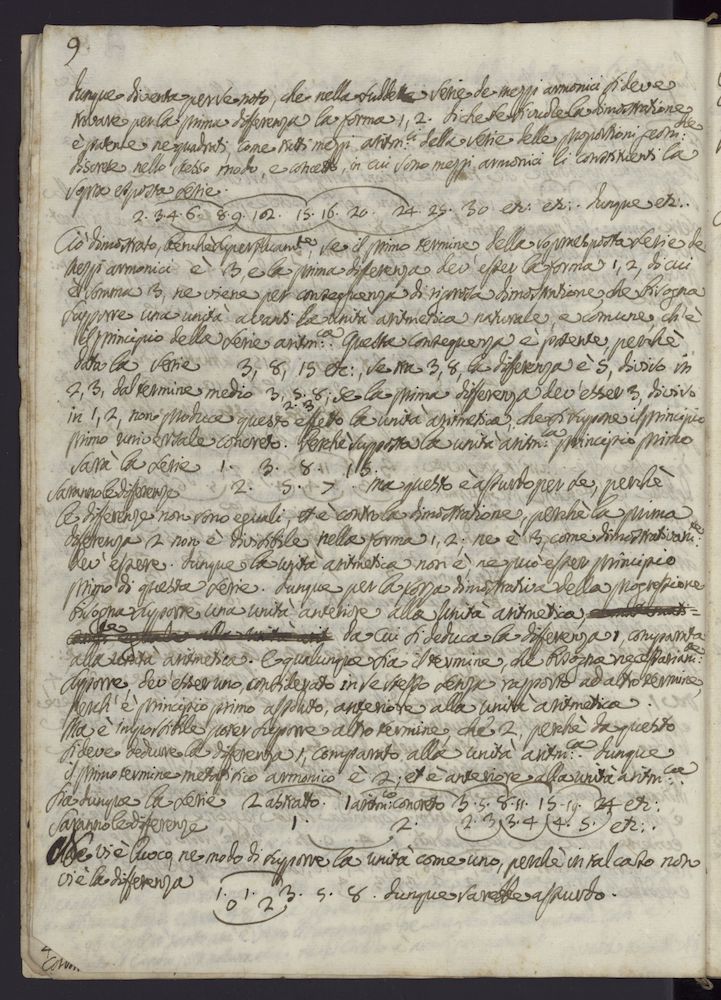 9.
dunque diventa per se noto, che nella suddetta serie de mezzi armonici si deve
trovare per la prima differenza la forma 1, 2. di che se si vuole la dimostrazione
è patente ne quadrati come tratti mezzi aritm:ci della serie delle proporzioni geom:che
discrete nello stesso modo, e concetto, in cui sono mezzi armonici li constituenti la
sopra esposta serie.
2. 3. 4. 6. 8. 9. 10. 12. 15. 16. 20. 24. 25. 30 etc: etc:. dunque etc:.
Ciò dimostrato, benchè , se il primo termine della sopraesposta serie de
mezzi armonici è 3, e la prima differenza dev' esser la forma 1, 2, di cui
è somma 3, ne viene per conseguenza di riprova dimostrazione, che bisogna
supporre una unità avanti la unità aritmetica naturale, e comune, ch' è
il principio della serie aritm:ca. Questa conseguenza è patente, perchè
data la serie 3, 8, 15 etc:, se tra 3, 8, la differenza è 5, diviso in
2, 3, dal termine medio 3, 5. 8, se la prima differenza dev' esser 3, diviso
2. 3
in 1, 2, non produce questo effetto la unità aritmetica, che si suppone il principio
primo universale concreto. Perchè supposta la unità aritm:ca principio primo
sarà la serie 1. 3. 8. 15.
saranno le differenze 2. 5. 7. ma questo è assurdo per se, perchè
le differenze non sono eguali, et è contro la dimostrazione, perchè la prima
differenza 2 non è divisibile nella forma 1, 2; ne è 3, come dimostrativam:te
dev' essere. dunque la unità aritmetica non è ne può esser principio
primo di questa serie. dunque per la forza dimostrativa della progressione
bisogna supporre una unità anteriore alla unità aritmetica,
da cui si deduca la differenza 1, comparata
alla unità aritmetica. E qualunque sia il termine, che bisogna necessariam:te
supporre dev' esser uno, considerato in se stesso senza rapporto ad altro termine,
perch' è principio primo assoluto, anteriore alla unità aritmetica.
Ma è impossibile poter supporre altro termine, che 2, perchè da questo
si deve dedurre la differenza 1, comparato alla unità aritm:ca. dunque
il primo termine metafisico armonico è 2; et è anteriore alla unità aritm:ca.
sia dunque la serie 2 astratto. 1 aritm:co concreto 3. 5. 8. 11. 15. 19. 24 etc:.
saranno le differenze 1. 2. 2. 3. 3. 4. 4. 5. etc:.
Ne vi è luoco, ne modo di supporre la unità come uno, perchè in tal caso non
vi è la differenza
1. 1. 3. 5. 8. dunque sarebbe assurdo.
0 2